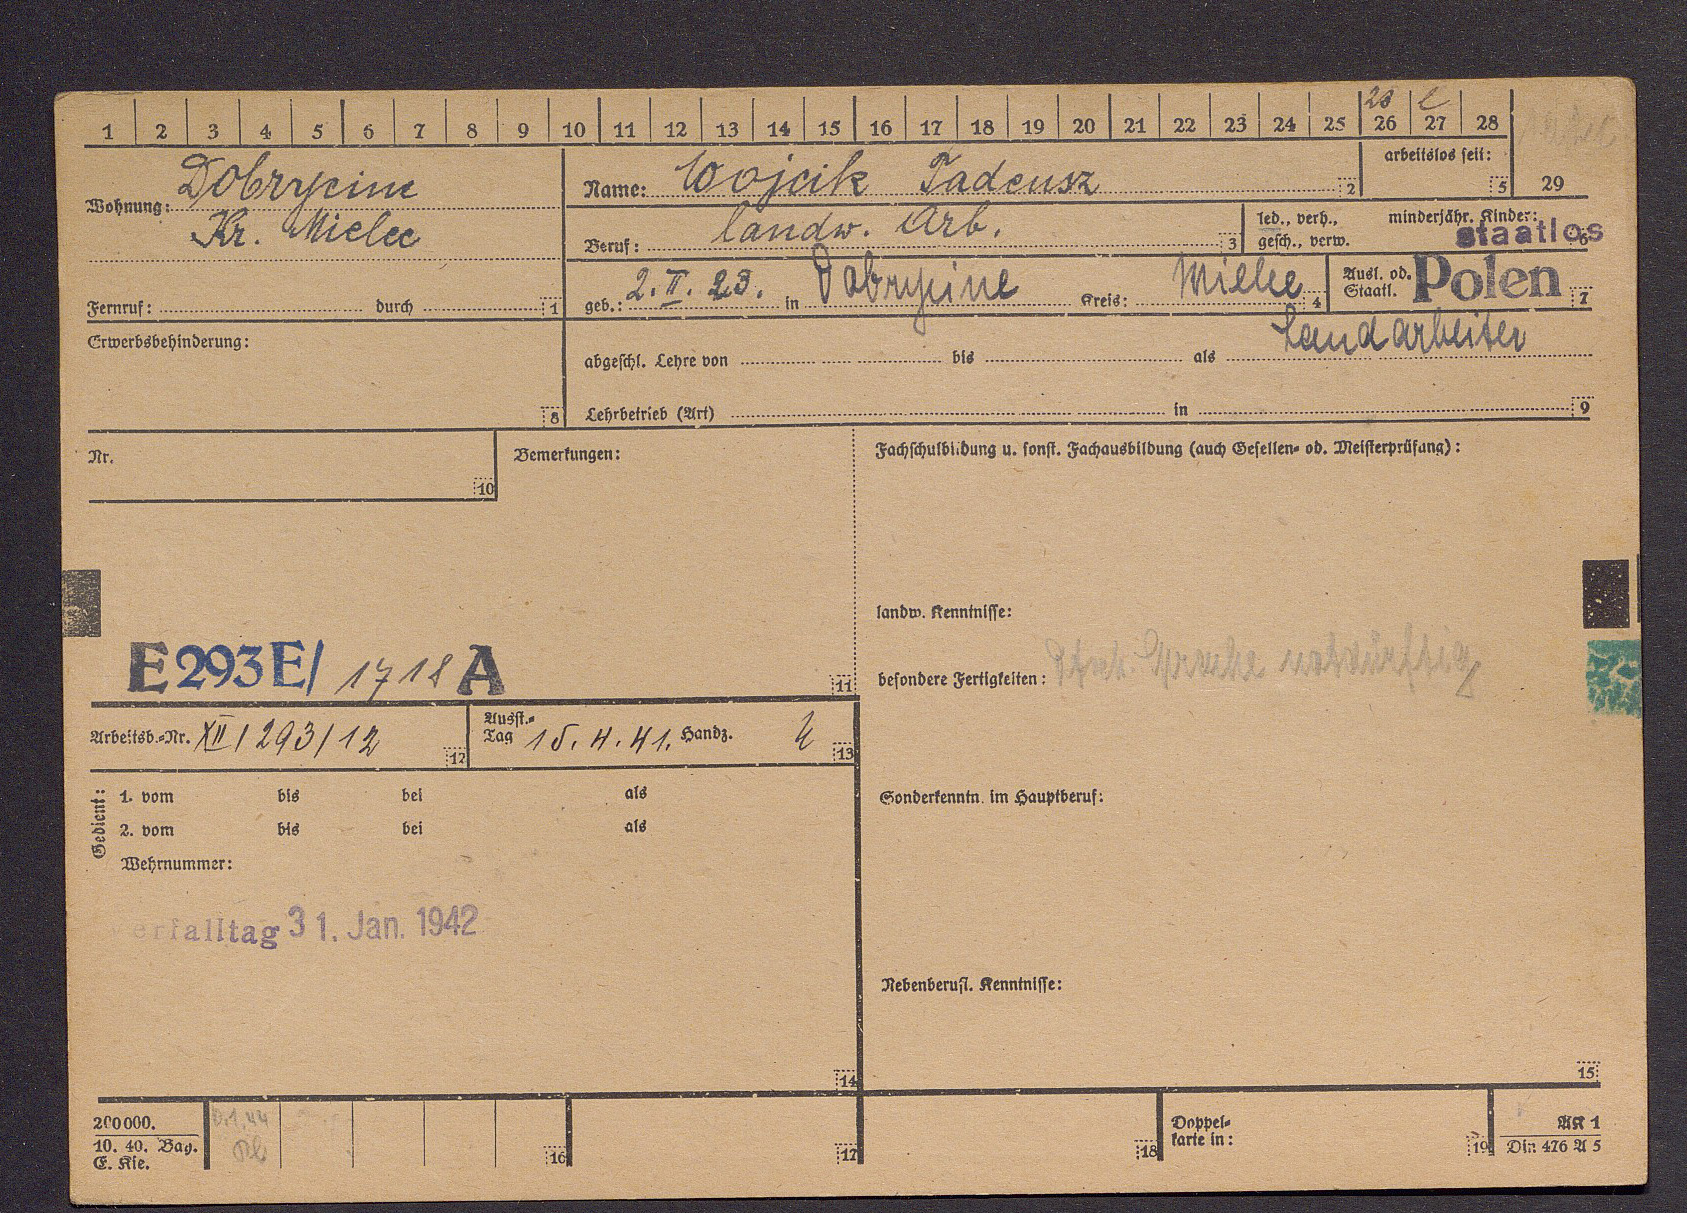 28 e
1 2 3 4 5 6 7 8 9 10 11 12 13 14 15 16 17 18 19 20 21 22 23 24 25 26 27 28
Wohnung: Dobrycine
Kr. Mielec
Fernruf: durch 1
Name: Wojcik Tadeusz 2
arbeitslos seit: 5
29
Beruf: landw. Arb. 3
led., verh., gesch., verw.
minderjähr. Kinder: 6
staatlos
geb.: 2. II. 23. in Dobrycine Kreis: Mielec 4
Ausl. od. Staatl. Polen 7
Erwerbsbehinderung: 8
abgeschl. Lehre von bis als Landarbeiter
Lehrbetrieb (Art) in 9
Nr. 10
Bemerkungen:
Fachschulbildung u. sonst. Fachausbildung (auch Gesellen- od. Meisterprüfung):
landw. Kenntnisse:
E 293 E/ 1718 A 11
besondere Fertigkeiten: Sprache notdürftig
Arbeitsb.-Nr. XII/293/12 12
Ausst.-Tag 15.4.41. Handz. 13
Gedient:
1. vom bis bei als
2. vom bis bei als
Wehrnummer:
Sonderkenntn. im Hauptberuf:
Verfalltag 31. Jan. 1942
Nebenberufl. Kenntnisse:
14
15
200000.
10. 40. Bag.
E. Kie.
16
17
18
Doppel-
karte in: 19
AK 1
Din 476 A 5